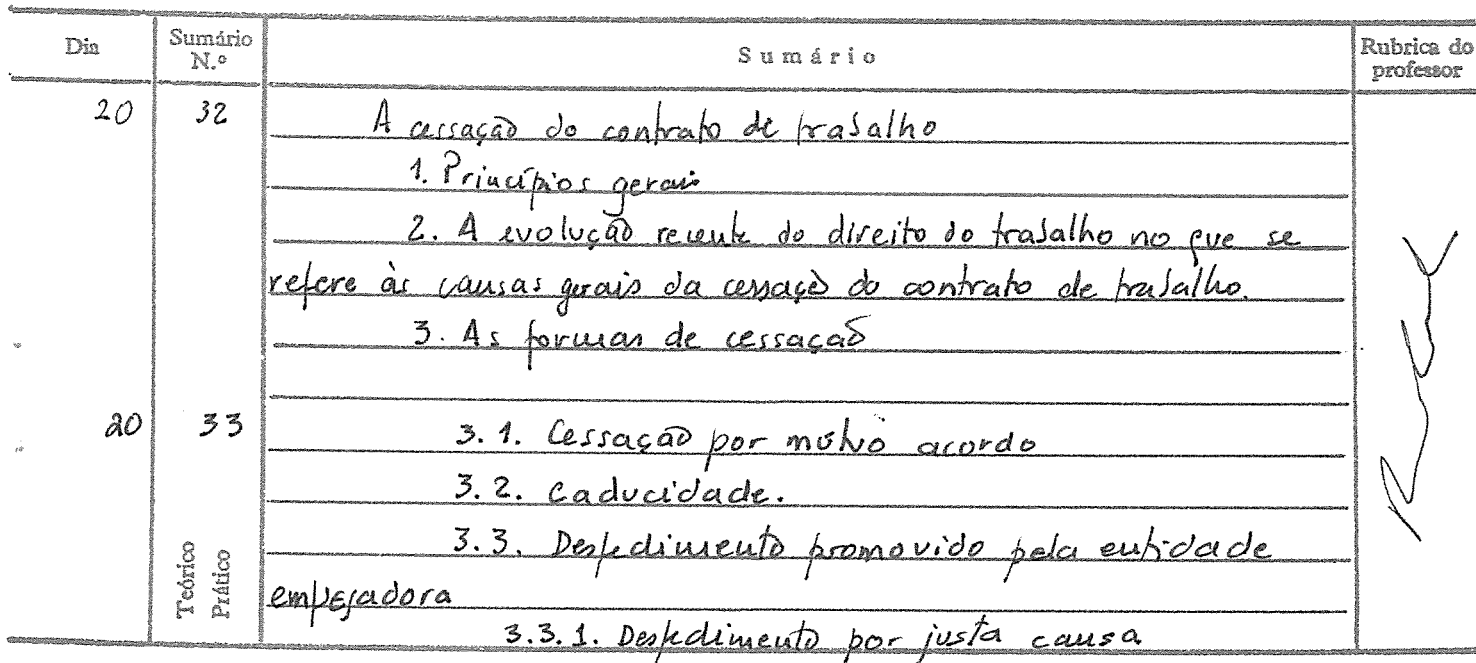 Dia Sumário N.º Sumário Rubrica do professor
20 32 A cessação do contrato de trabalho
1. Princípios gerais
2. A evolução recente do direito do trabalho no que se
refere às causas gerais da cessação do contrato de trabalho.
3. As formas de cessação
20 33 3.1. Cessação por mútuo acordo
3.2. Caducidade.
3.3. Despedimento promovido pela entidade
Teórico
Prático
empregadora
3.3.1. Despedimento por justa causa